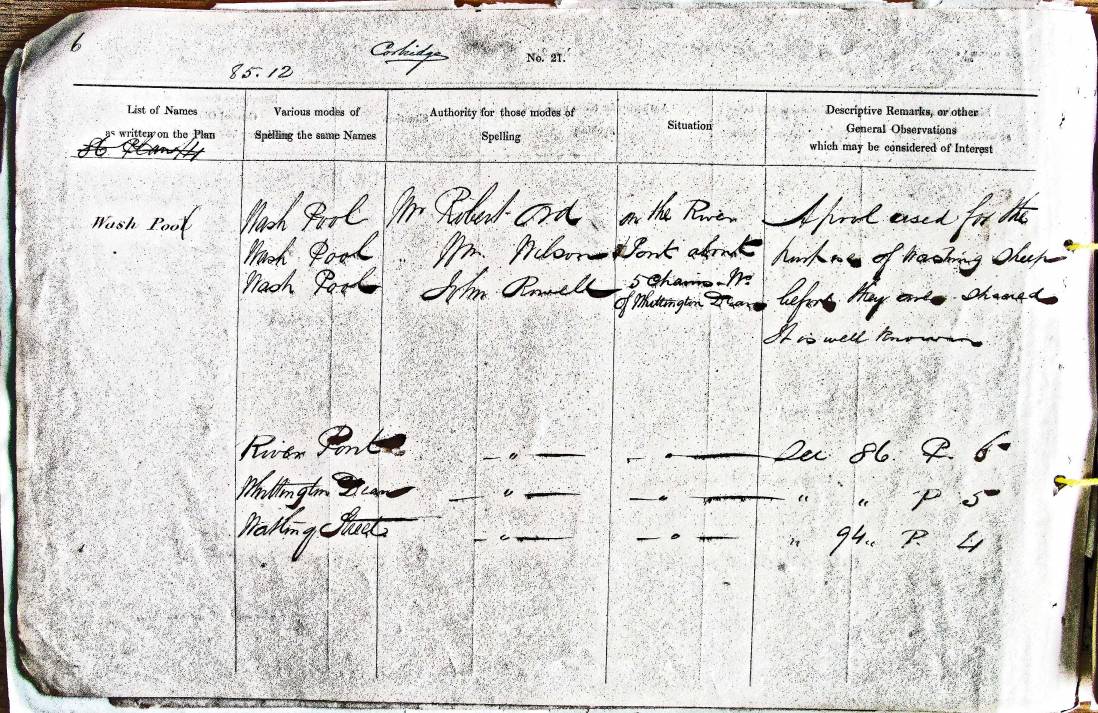 6
Corbridge
No. 21.
85.12
List of Names
as written on the Plan
86 Plan 4
Various modes of
Spelling the same Names
Authority for those modes of
Spelling
Situation
Descriptive Remarks, or other
General Observations
which may be considered of Interest
Wash Pool
Wash Pool
Wash Pool
Wash Pool
Mr Robert Ord
Wm. Wilson
John Rowell
on the River
Pont about
5 Chains W.
of Whittington Dean
A pool used for the
purpose of washing sheep
before they are sheared
It is well known
River Pont — " — — " — See 86. P. 6
Whittington Dean — " — — " — " " P 5
Watling Street — " — — " — " 94 " P. 4